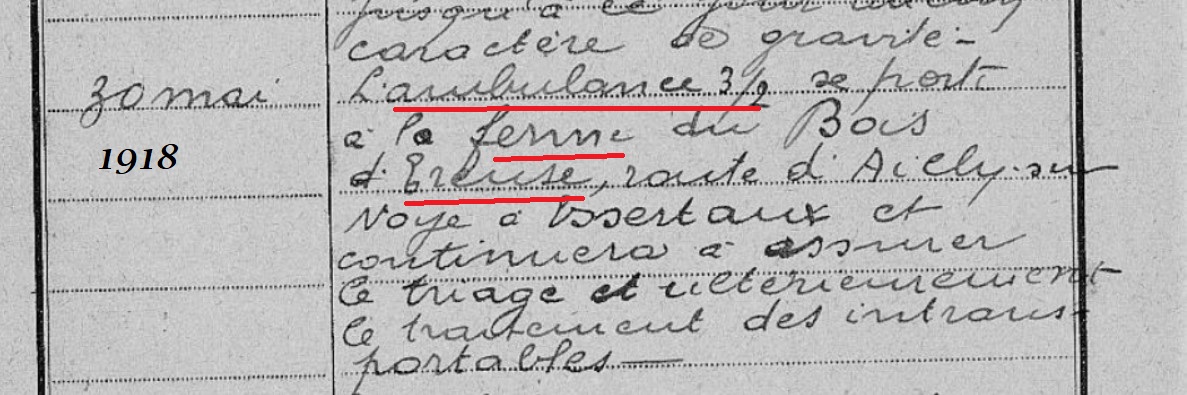 jusqu'à ce jour aucun
caractère de gravité -
30 mai
L'ambulance 3/2 se porte
à la ferme du Bois
1918
d'Ereuse, route d'Ailly-sur
Noye à Essertaux et
continuera à assurer
le triage et ultérieurement
le traitement des intrans-
portables —